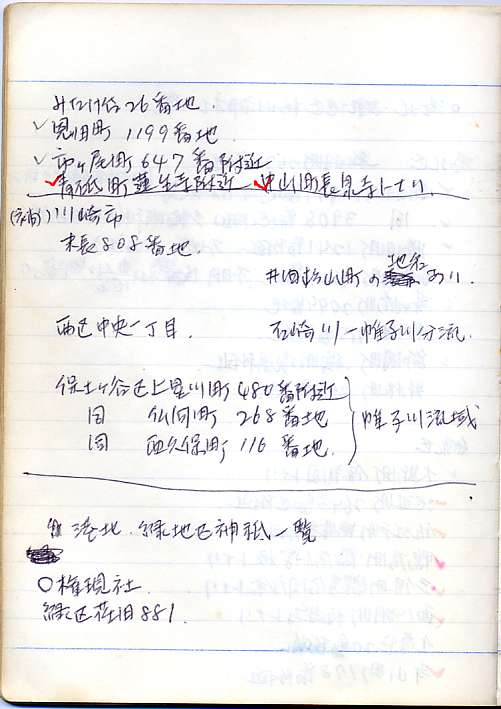 みたけ台26番地.
恩田町 1199番地
市ヶ尾町 647 番附近
青砥町蓮生寺附近 中山町長泉寺トナリ
(補) 川崎市
末長808番地.
井田杉山町の地名あり.
西区中央一丁目. 石崎川ー帷子川分流.
保土ヶ谷区上星川町 480番附近
同 仏向町 268番地 帷子川流域
同 西久保町 116 番地.
港北.緑地区神祇一覧
○権現社
緑区荏田881.